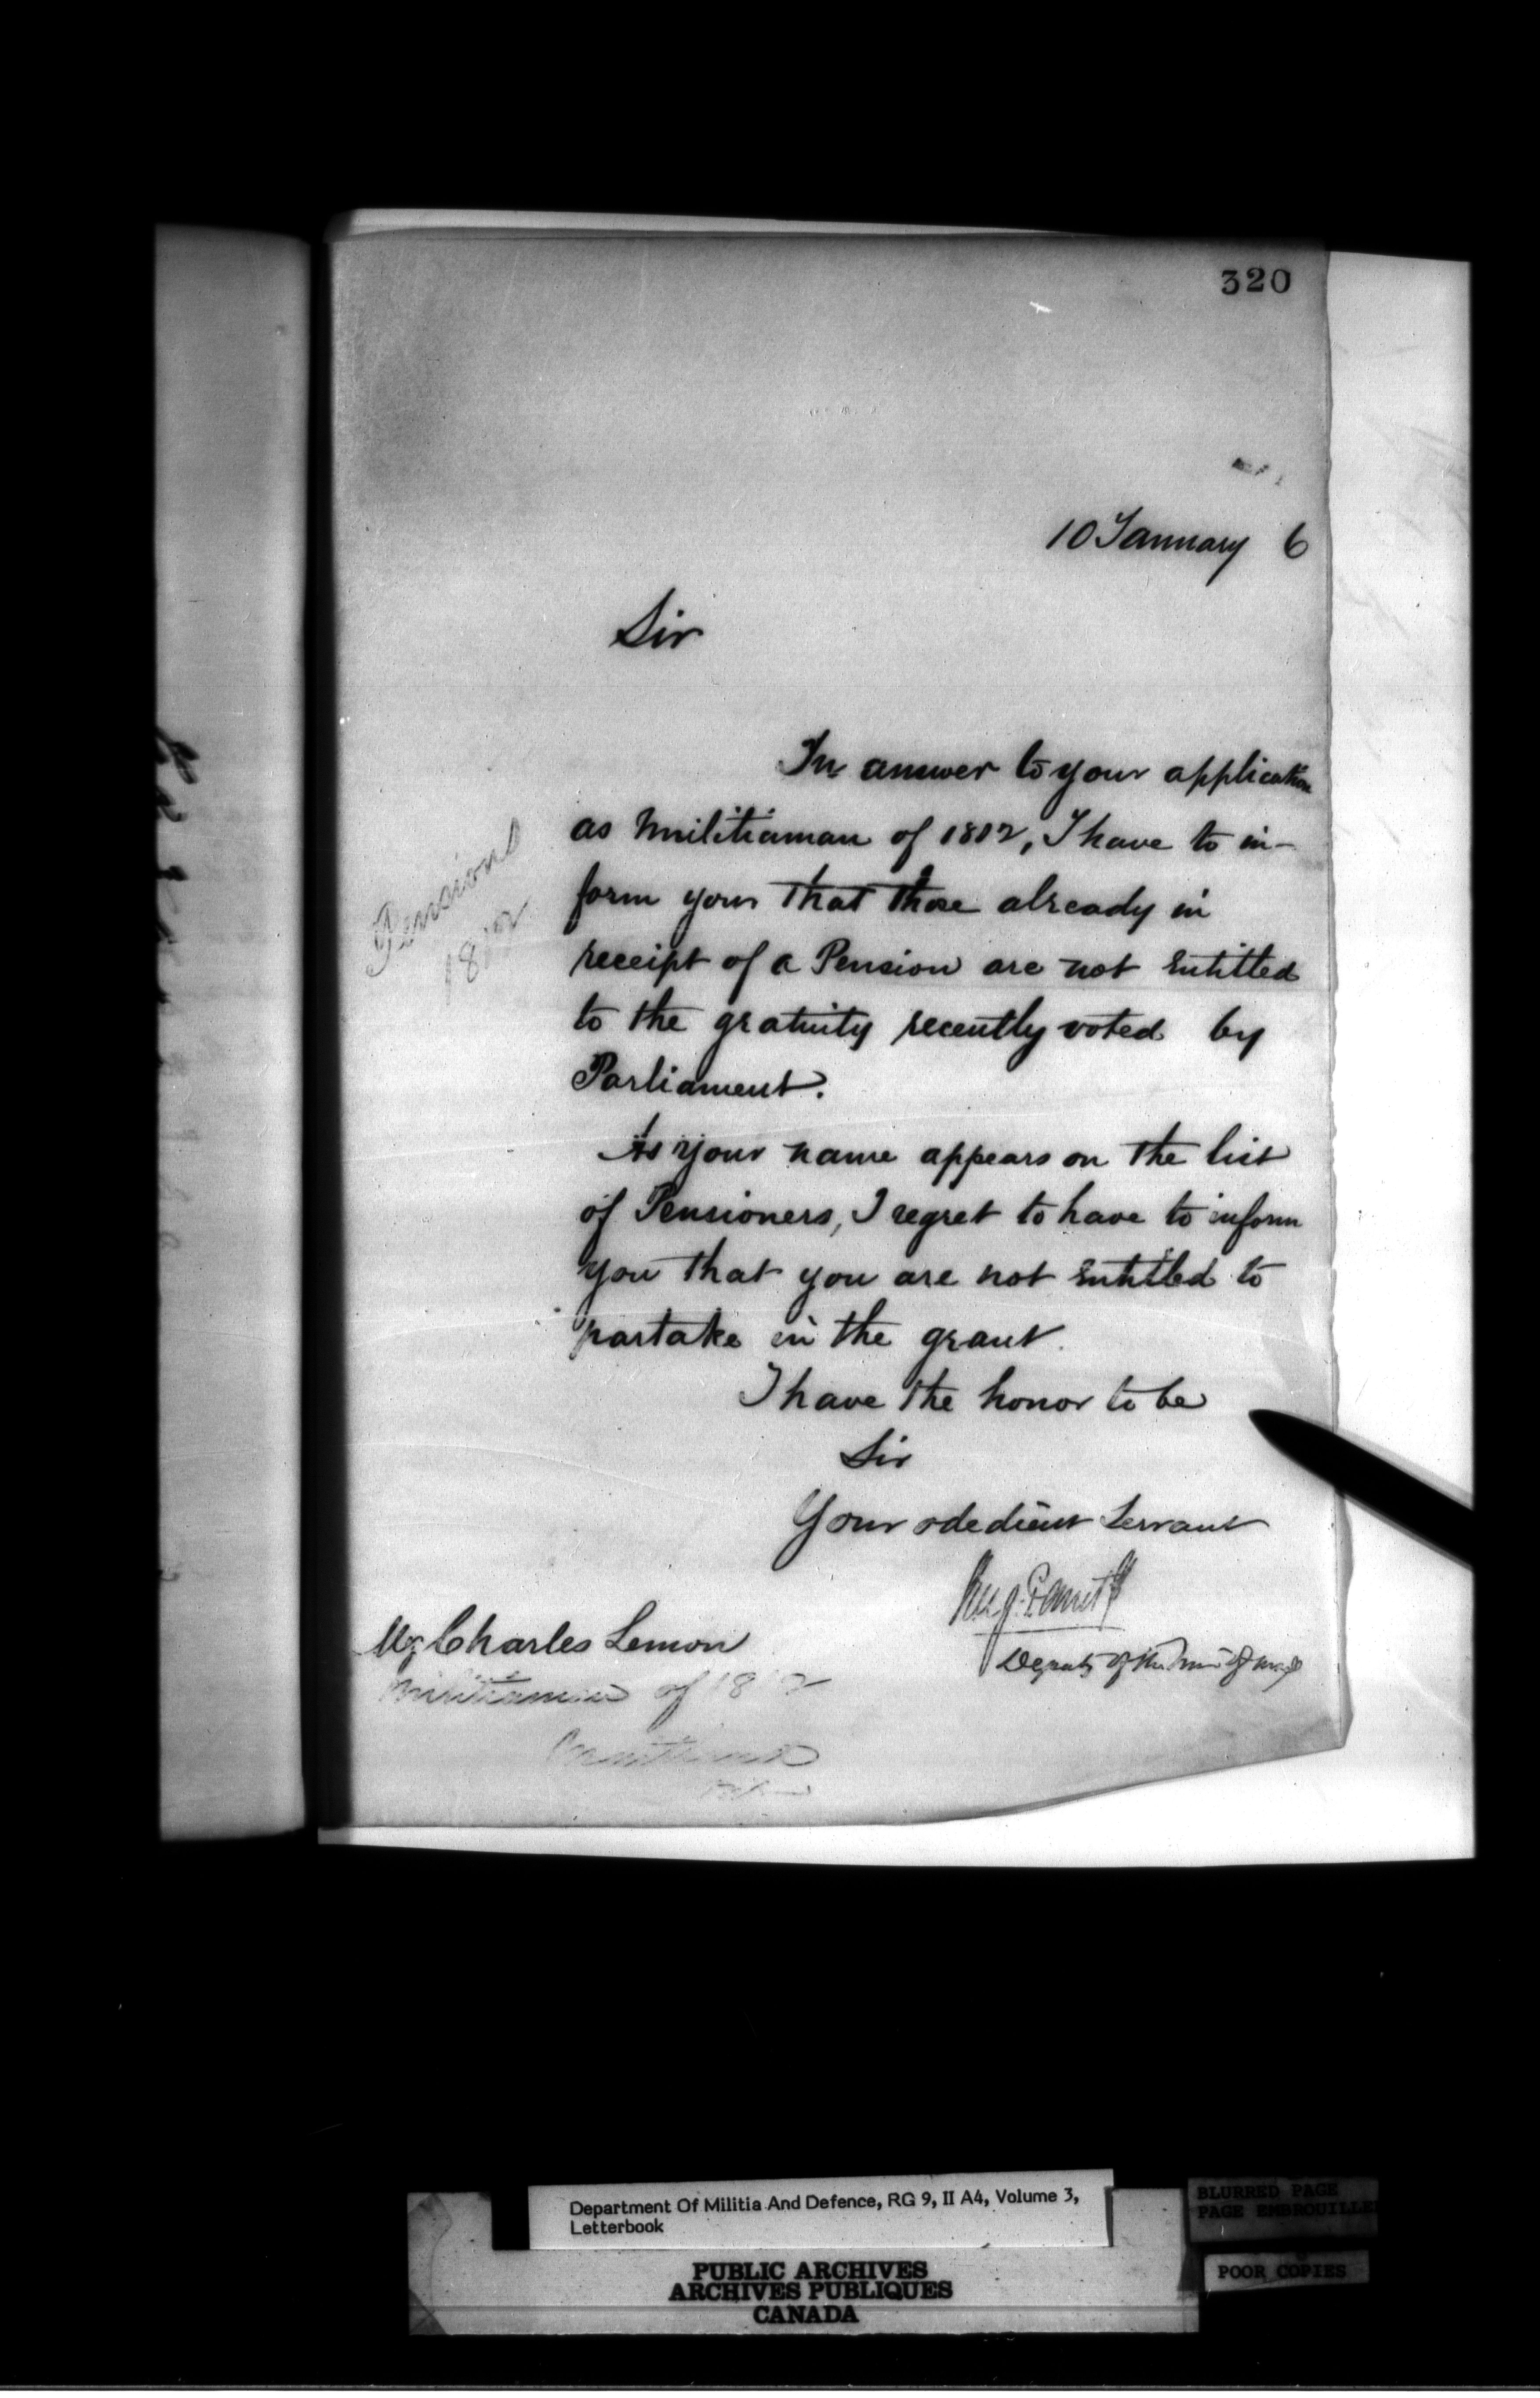 320
10 January 6
Sir
In answer to your application
as Militiaman of 1812, I have to in-
form your that those already in
receipt of a Pension are not entitled
to the gratuity recently voted by
Parliament.
As your name appears on the list
of Pensioners, I regret to have to inform
you that you are not entitled to
partake in the grant.
I have the honor to be
Sir
Your obedient Servant
Deputy of the Min of
Mr Charles Lemon
Militiaman of 1812
Pensions
1812
Department Of Militia And Defence, RG 9, II A4, Volume 3,
Letterbook
PUBLIC ARCHIVES
ARCHIVES PUBLIQUES
CANADA
BLURRED PAGE
PAGE EMBROUILLE
POOR COPIES